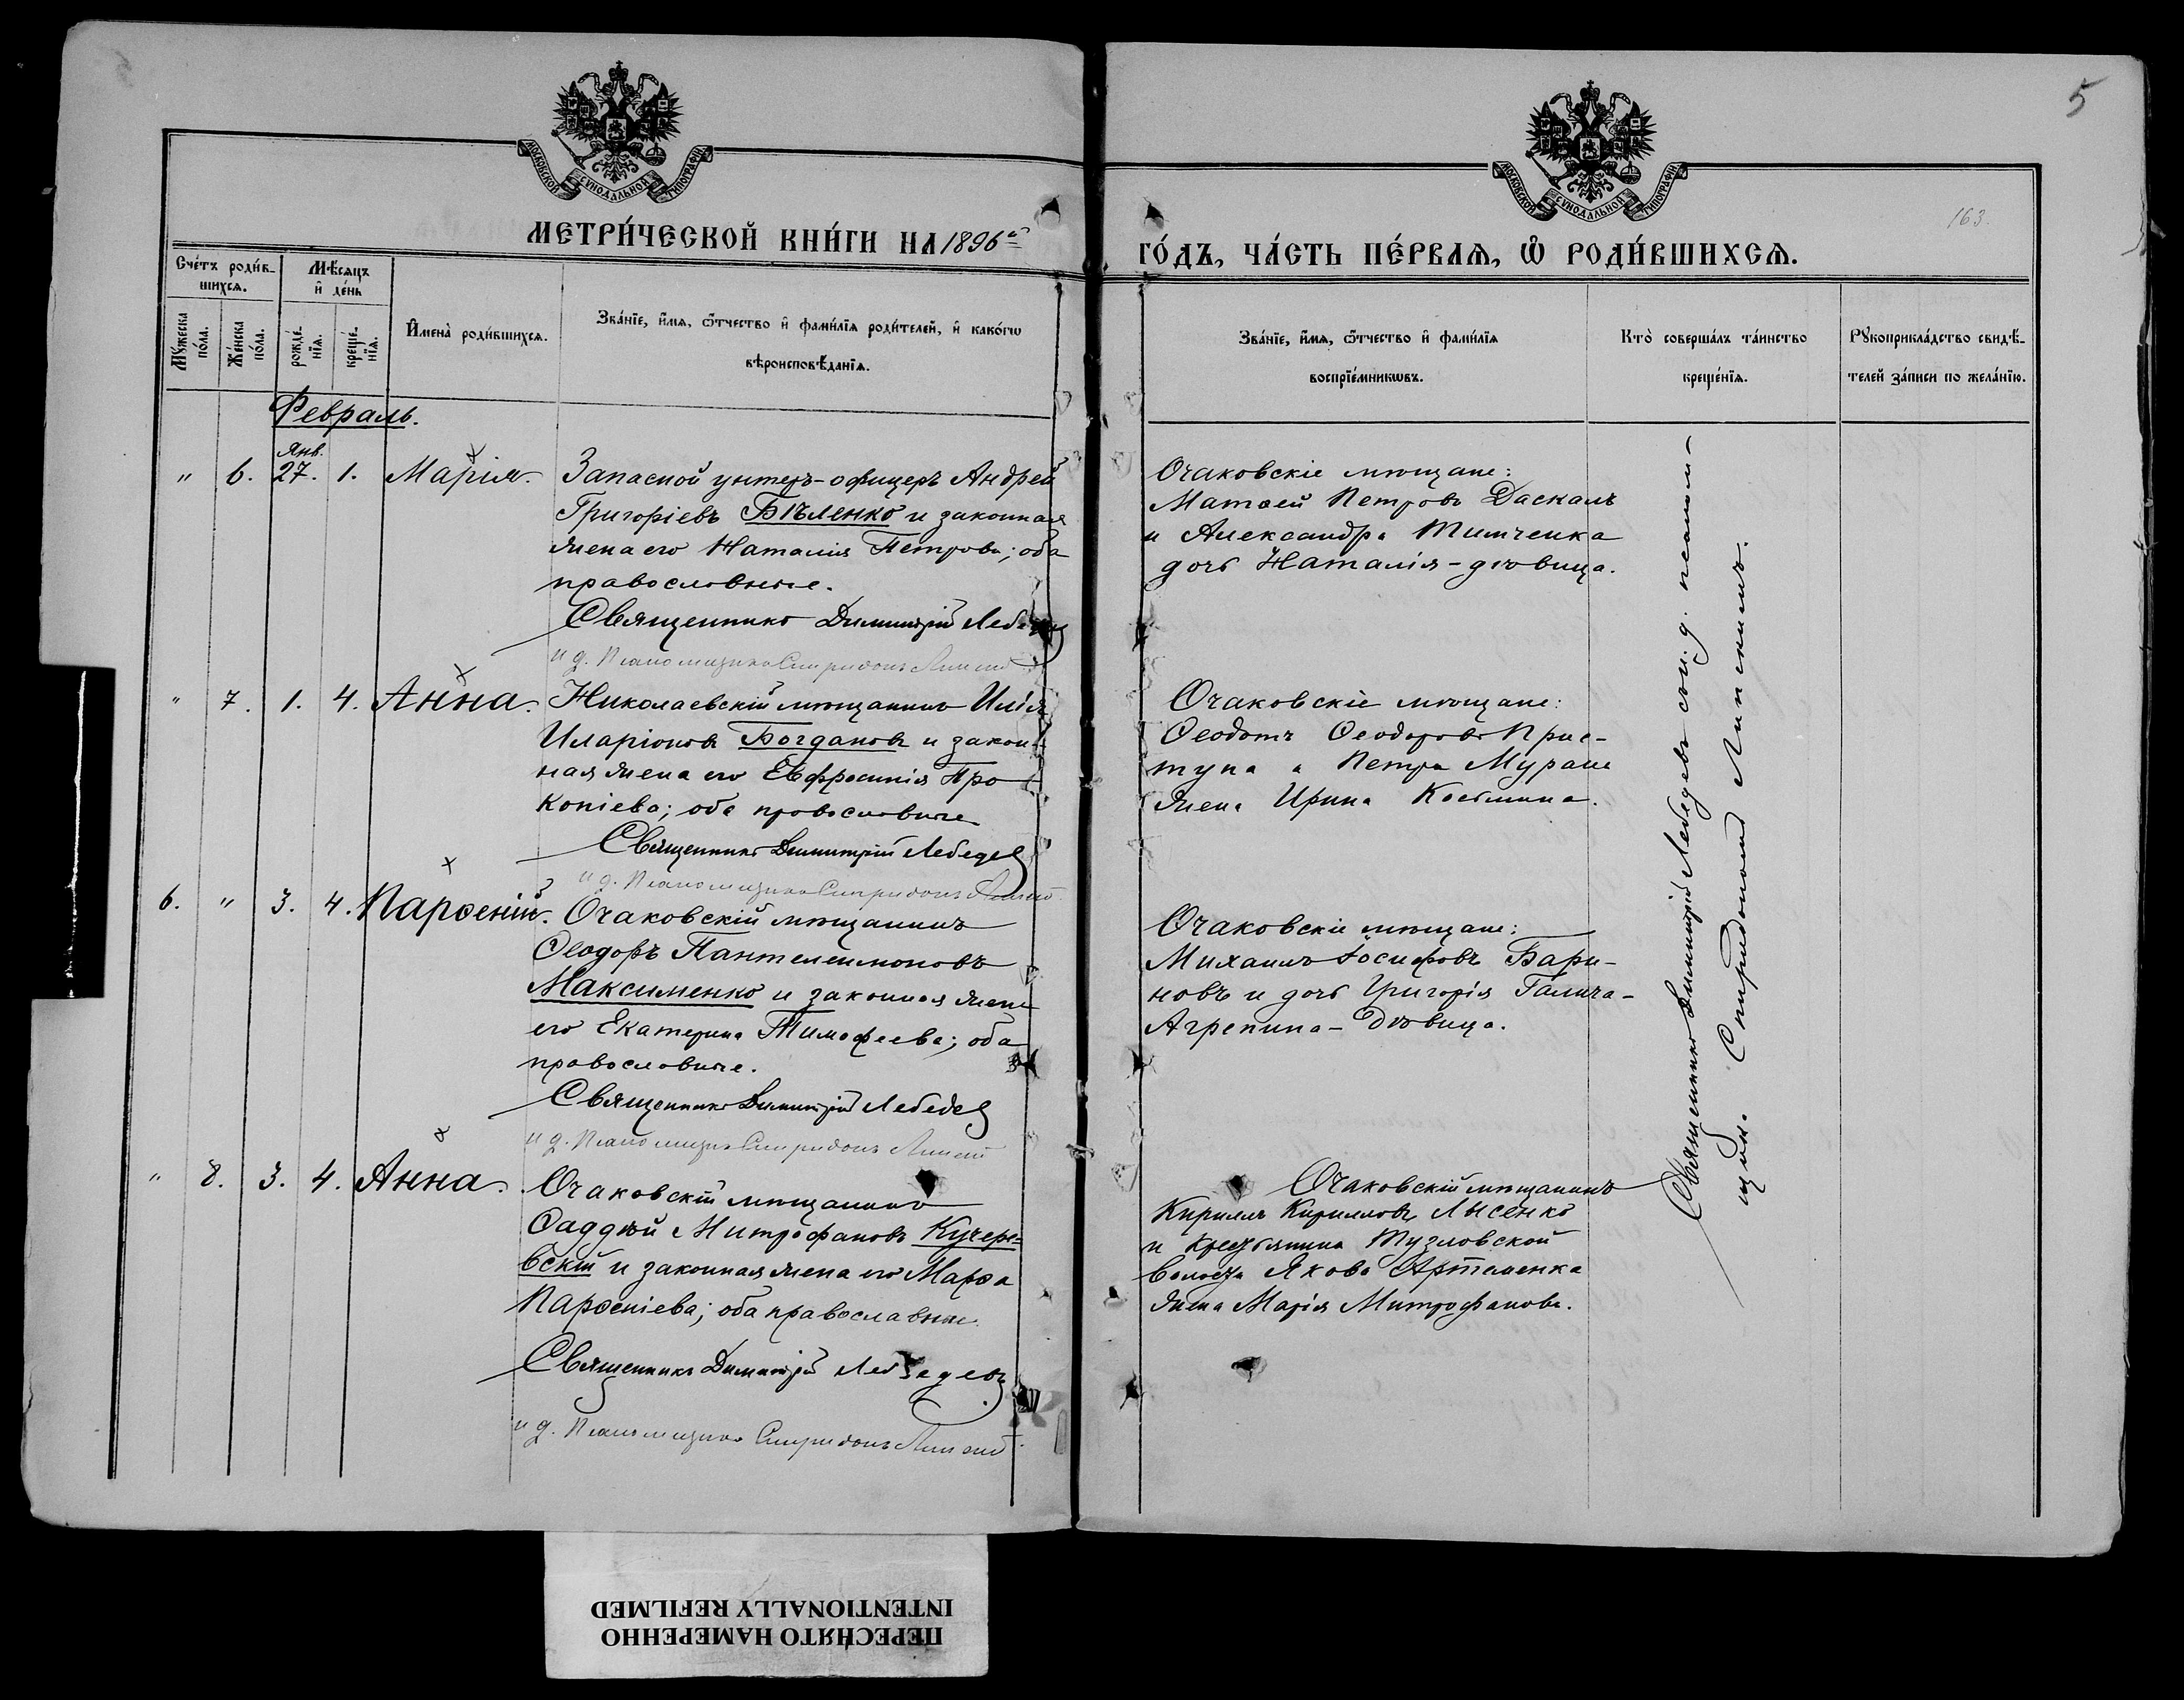 5
163.
МОСКОВСКОЙ СУНОДАЛЬНОЙ ТИПОГРАФІИ
МОСКОВСКОЙ СУНОДАЛЬНОЙ ТИПОГРАФІИ
МЕТРИ́ЧЕСКОЙ КНИ́ГИ НА 1896й
ГО́ДЪ, ЧА́СТЬ ПЕ́РВАѦ, Ѽ РОДИ́ВШИХСѦ.
Сче́тъ роди́в-
шихсѧ.
Мѣ́сѧцъ
и҆ де́нь
Мꙋ́жеска по́ла.
Же́нска по́ла.
рожде́-
нїѧ.
креще́-
нїѧ.
И҆мена̀ роди́вшихсѧ.
Зва́нїе, и҆́мѧ, ѻ҆́тчество и҆ фами́лїѧ роди́телей, и҆ како́гѡ
вѣроисповѣ́данїѧ.
Зва́нїе, и҆́мѧ, ѻ҆́тчество и҆ фами́лїѧ
воспрїе́мникѡвъ.
Кто̀ соверша́лъ та́инство
креще́нїѧ.
Рꙋкоприкла́дство свидѣ́-
телей за́писи по жела́нїю.
Февраль.
Янв.
" 6. 27. 1. Марія.
Запасной унтеръ-офицеръ Андрей
Григоріевъ Бѣленко и законная
жена его Наталія Петрова; оба
православные.
Священникъ Димитрій Лебедев
и д. Псаломщика Спиридонъ
Очаковскіе мѣщане:
Матѳей Петровъ Даскалъ
и Александра Тимченка
дочь Наталія-дѣвица.
" 7. 1. 4. Анна.
Николаевскій мѣщанинъ Илія
Иларіоновъ Богдановъ и закон-
ная жена его Евфросинія Про
копіева; оба православные
Священникъ Димитрій Лебедев
и д. Псаломщика Спиридонъ
Очаковскіе мѣщане:
Ѳеодотъ Ѳеодоровъ Прис-
тупа и Петра Мурани
жена Ирина Косьмина.
6. " 3. 4. Парѳеній.
Очаковскій мѣщанинъ
Ѳеодоръ Пантелеимоновъ
Максименко и законная жена
его Екатерина Тимофеева; оба
православные.
Священникъ Димитрій Лебедев
и д. Псаломщика Спиридонъ
Очаковскіе мѣщане:
Михаилъ Іосифовъ Бари-
новъ и дочь Григорія Галича-
Агрепина-Дѣвица.
" 8. 3. 4. Анна.
Очаковскій мѣщанинъ
Ѳаддѣй Митрофановъ Кучере-
вскій и законная жена его Марѳа
Парѳеніева; оба православные.
Священникъ Димитрій Лебедевъ
и д. Псаломщика Спиридонъ
Очаковскій мѣщанинъ
Кириллъ Кирилловъ Лысенко
и крестьянина Тузловской
волости Якова Артеменка
жена Марія Митрофанова.
Священникъ Димитрій Лебедевъ съ и. д. псалом-
щика Спиридономъ Липскимъ.
ПЕРЕСНЯТО НАМЕРЕННО
INTENTIONALLY REFILMED